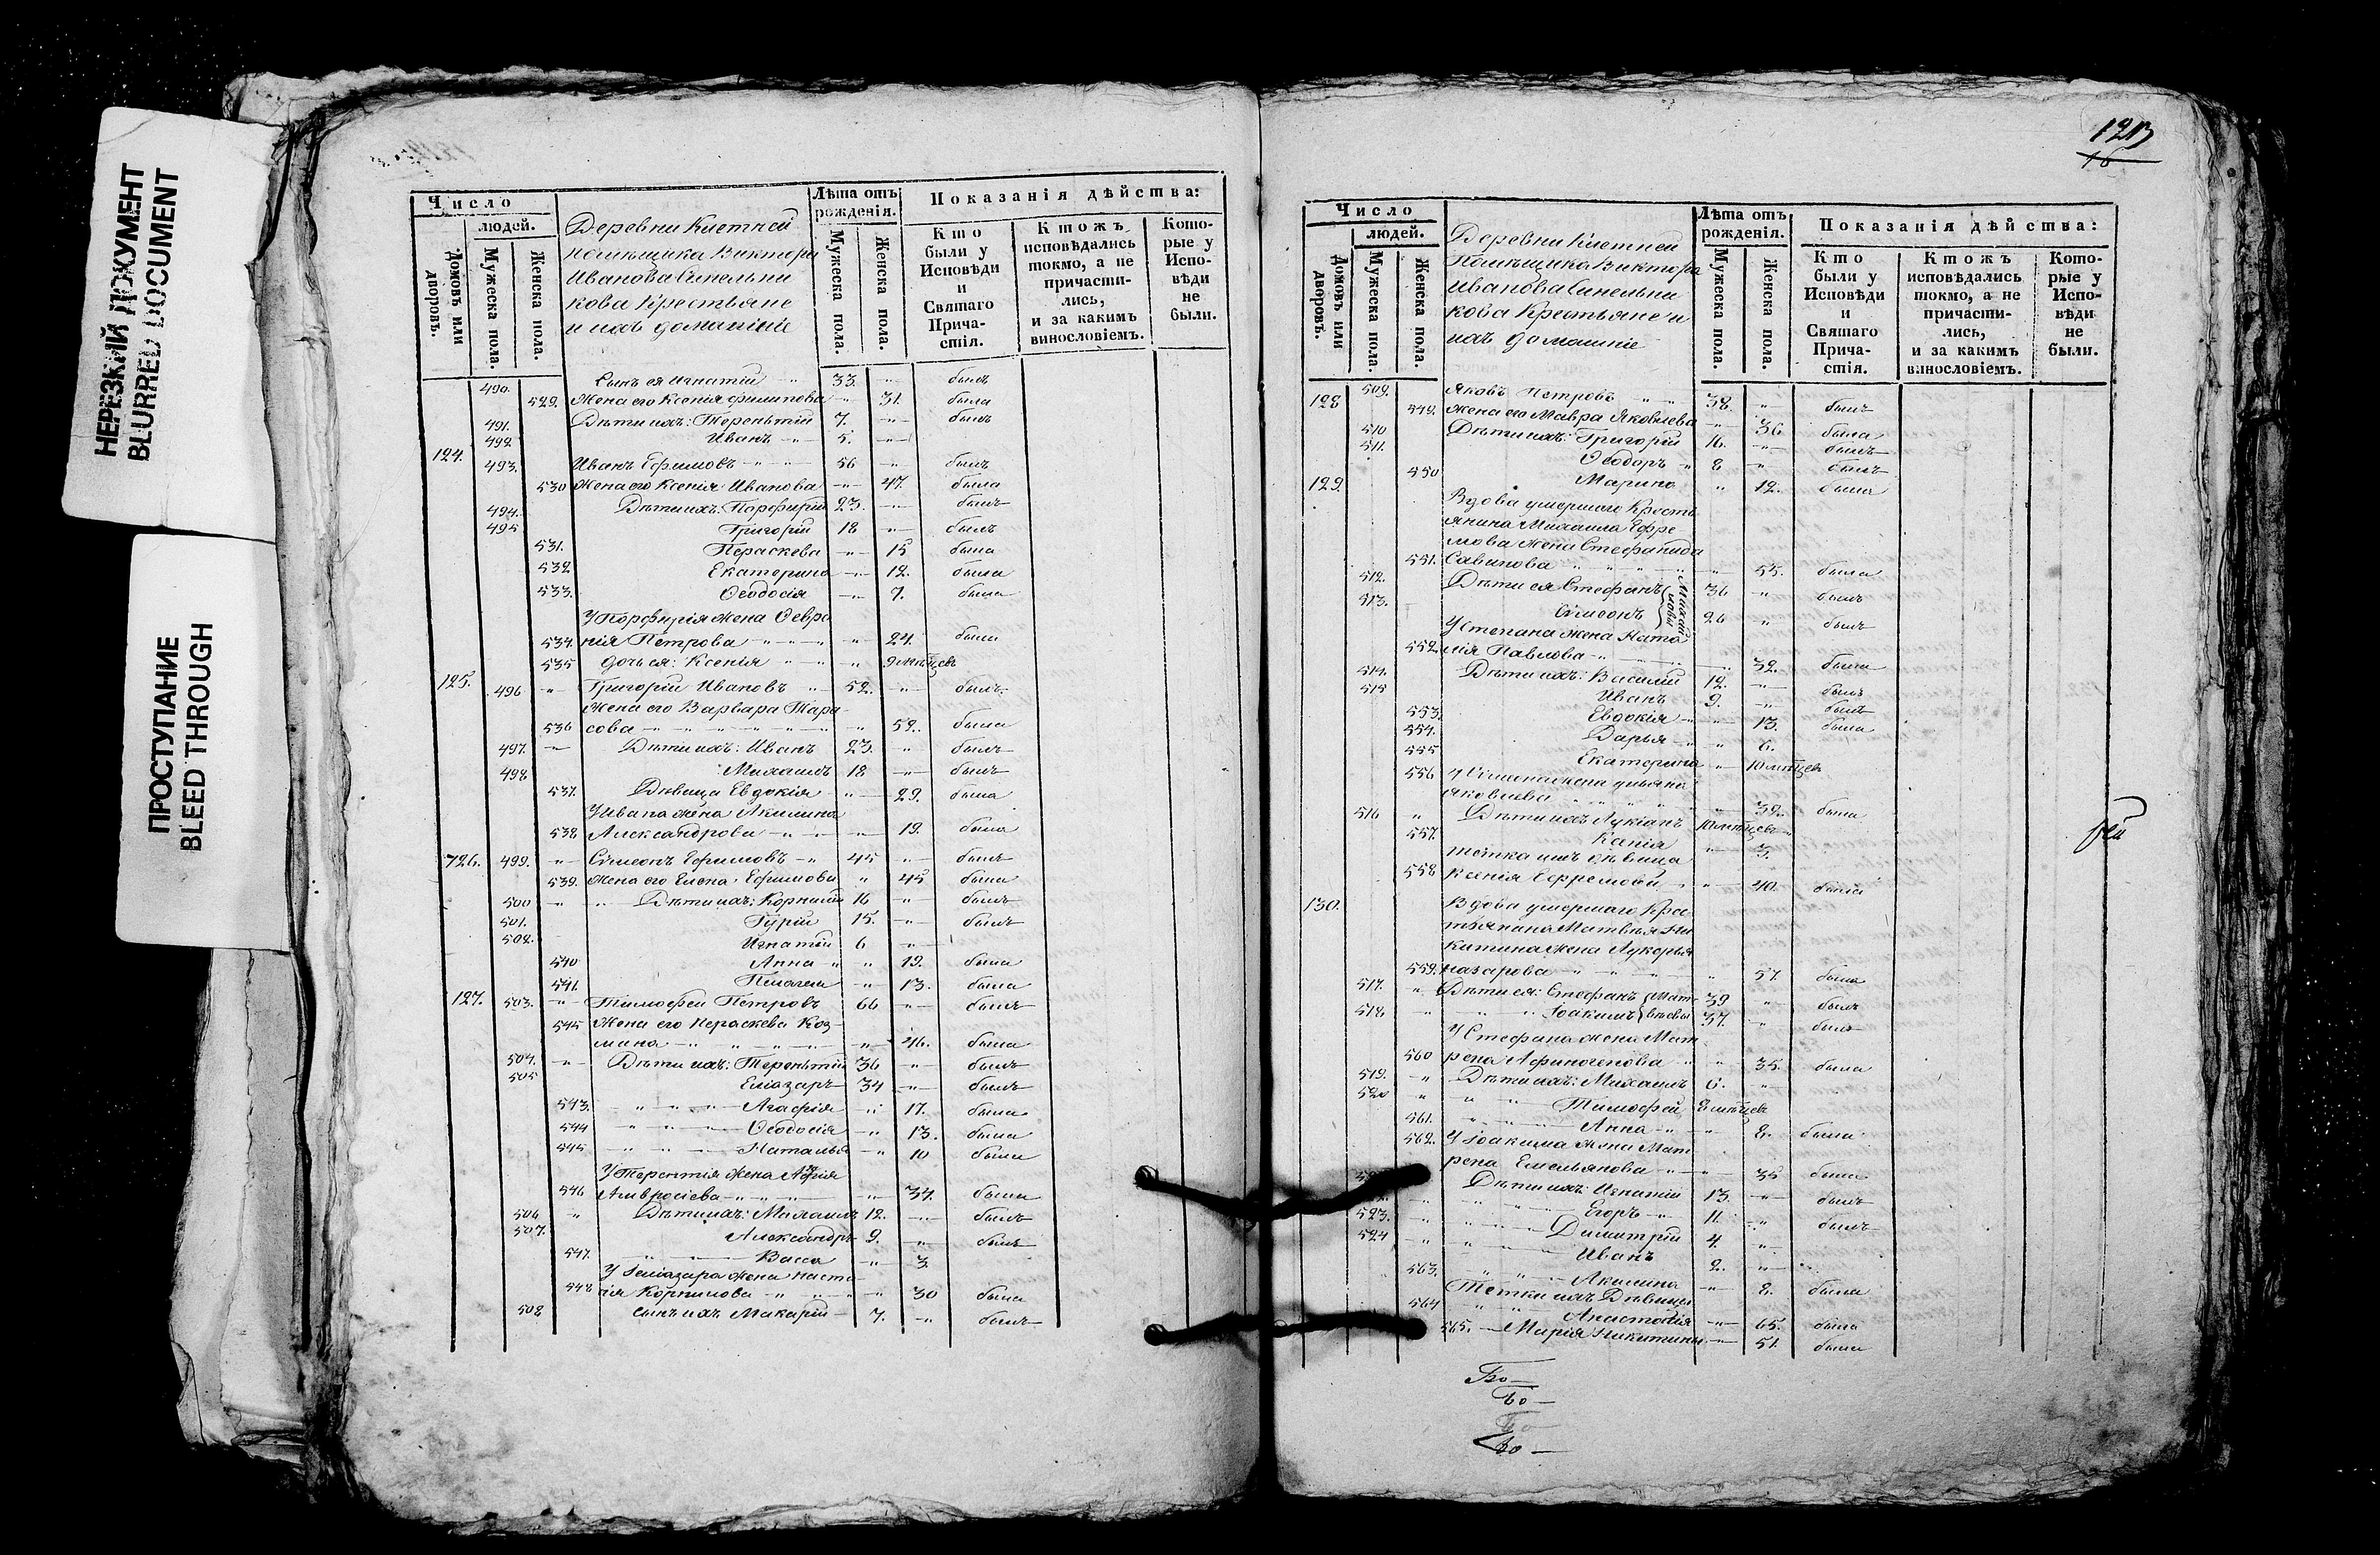 НЕРЕЗКИЙ ДОКУМЕНТ
BLURRED DOCUMENT
ПРОСТУПАНИЕ
BLEED THROUGH
Число
людей.
Домовъ или дворовъ.
Мужеска пола.
Женска пола.
Деревни Клетней
помѣщика Виктора
Иванова Синельни
кова Крестьяне
и ихъ домашніе
Лѣта отъ рожденія.
Мужеска пола.
Женска пола.
Показанія дѣйства:
Кто были у Исповѣди и Святаго Прича- стія.
Ктожъ исповѣдались токмо, а не причасти- лись, и за какимъ винословіемъ.
Кото- рые у Испо- вѣди не были.
490. Сынъ ея Игнатій 33. былъ
529. Жена его Ксенія Филипова 31. была
491. Дѣти ихъ: Терентій 7. былъ
492. Иванъ 5.
124. 493. Иванъ Ефимовъ 56 былъ
530 Жена его Ксенія Иванова 47. была
494. Дѣти ихъ: Порфирій 23. былъ
495 Григорій 18 былъ
531. Параскева 15 была
532 Екатерина 12. была
533. Ѳеодосія 7. была
У Порфирія жена Февро
534. нія Петрова 24. была
535 дочь ея: Ксенія 9 мѣсяцевъ
125. 496 Григорій Ивановъ 52. былъ
Жена его Варвара Тара
536 сова 52. была
497. Дѣти ихъ: Иванъ 23. былъ
498 Михаилъ 18 былъ
537. Дѣвица Евдокія 29. была
У Ивана жена Акилина
538 Александрова 19. была
126. 499. Сѵмеонъ Ефимовъ 45 былъ
539. Жена его Елена Ефимова 45 была
500 Дѣти ихъ: Корнилій 16 былъ
501. Гурій 15. былъ
502. Игнатій 6
540 Анна 19. была
541. Пелагея 13. была
127. 503. Тимофей Петровъ 66 былъ
545 Жена его Параскева Коз
мина 46. была
504. Дѣти ихъ: Терентій 36 былъ
505 Еліазаръ 34 былъ
543. Агафія 17. была
544 Ѳеодосія 13. была
545 Наталья 10 была
У Терентія жена
546 Амвросіева 34. была
506 Дѣти ихъ: Михаилъ 12. былъ
507. Александръ 9. былъ
547. Васса 3.
У Еліазара жена Наста
548 сія Корнилова 30 была
508 Сынъ ихъ Макарій 7. былъ
1213
16
Число
людей.
Домовъ или дворовъ.
Мужеска пола.
Женска пола.
Деревни Клетней
Помѣщика Виктора
Иванова Синельни
кова Крестьяне и
ихъ домашніе
Лѣта отъ рожденія.
Мужеска пола.
Женска пола.
Показанія дѣйства:
Кто были у Исповѣди и Святаго Прича- стія.
Ктожъ исповѣдались токмо, а не причасти- лись, и за какимъ винословіемъ.
Кото- рые у Испо- вѣди не были.
128 509. Яковъ Петровъ 38. былъ
549. Жена его Мавра Яковлева 36 была
510 Дѣти ихъ: Григорій 16. былъ
511. Ѳеодоръ 8 былъ
550 Марина 12. была
129. Вдова умершаго Кресть
янина Михаила Ефре
мова жена Стефанида
551. Савинова 55. была
512. Дѣти ея Стефанъ Михайловы 36 былъ
513. Сѵмеонъ 26 былъ
У Степана жена Ната
552. лія Павлова 32. была
514. Дѣти ихъ: Василій 12. былъ
515 Иванъ 9. былъ
553. Евдокія 13. была
554. Дарья 6.
555 Екатерина 10 мѣсяцевъ
556 У жена
Яковлева 32. была
516 Дѣти ихъ Лукіанъ 10 мѣсяцевъ
557. Ксенія 3.
тетка ихъ дѣвица
558 Ксенія Ефремова 40. была
130. Вдова умершаго Кре
стьянина Матвѣя Ни
китина жена Лукерья
559. Назарова 57. была
517. Дѣти ея: Стефанъ Матвѣевы 39 былъ
518 Іоакимъ 37. былъ
У Стефана жена Мат
560 рена Афиногенова 35. была
519. Дѣти ихъ: Михаилъ 6.
520 Тимофей 8 мѣсяцевъ
561. Анна 8. была
562. У Іоакима жена Мат
рена Емельянова 35 была
Дѣти ихъ: Игнатій 13. былъ
Егоръ 11. былъ
523. Димитрій 4.
524 Иванъ 2.
563. Акилина 8. была
Тетки ихъ Дѣвицы
564 Анастасія 65. была
565. Марія Никитины 51. была